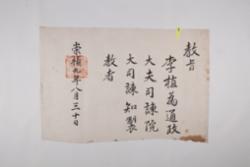 教旨
李植爲通政
大夫司諫院
大司諫知製
教者
崇禎九年八月三十日